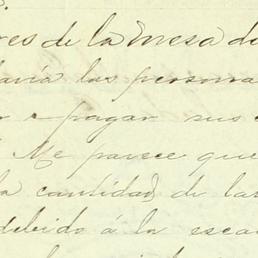 res de la Mesa de
las persona
r a pagar sus
Me parece que
la cantidad de las
debido á la esca